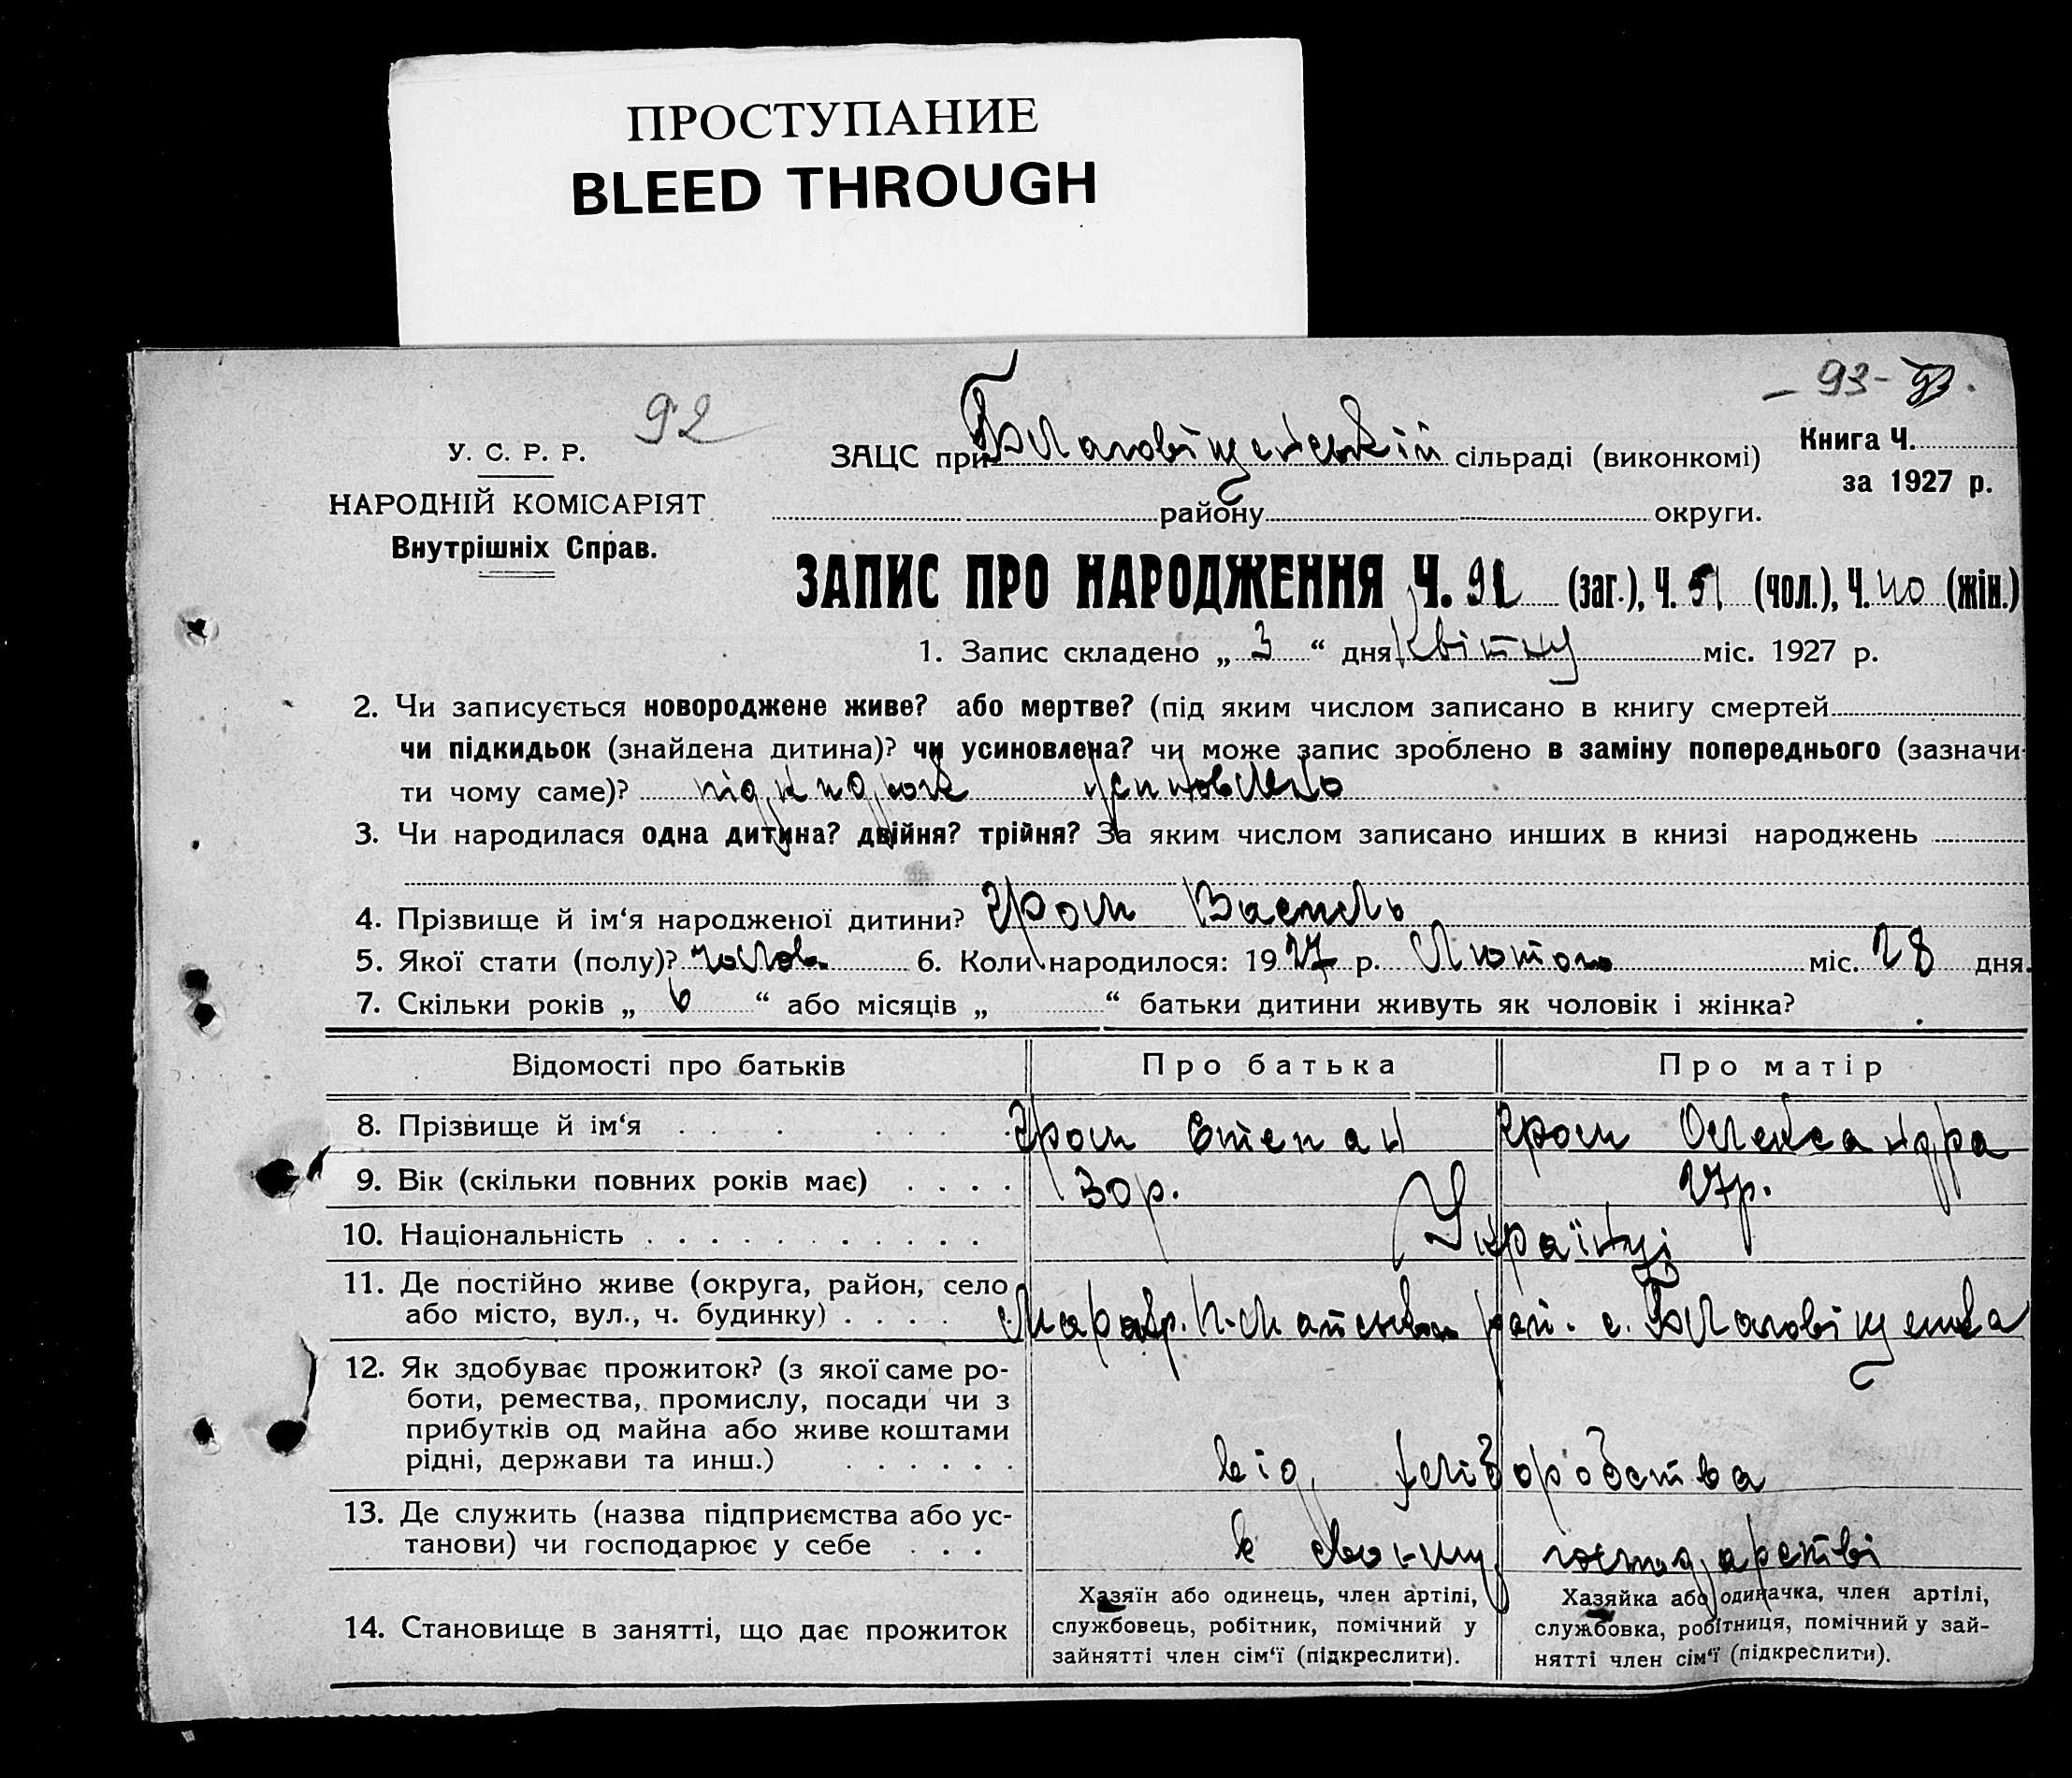 ПРОСТУПАНИЕ
BLEED THROUGH
- 93 -
92
У. С. Р. Р.
НАРОДНІЙ КОМІСАРІЯТ
Внутрішніх Справ.
ЗАЦС при Благовіщенській сільраді (виконкомі)
Книга Ч.
за 1927 р.
району округи.
ЗАПИС ПРО НАРОДЖЕННЯ Ч. 91 (заг.), Ч. 51 (чол.), Ч. 40 (жін.)
1. Запис складено „ 3 “ дня Квітня міс. 1927 р.
2. Чи записується новороджене живе? або мертве? (під яким числом записано в книгу смертей
чи підкидьок (знайдена дитина)? чи усиновлена? чи може запис зроблено в заміну попереднього (зазначи-
ти чому саме)? підкидьок усиновлено
3. Чи народилася одна дитина? двійня? трійня? За яким числом записано инших в книзі народжень
4. Прізвище й ім‘я народженої дитини? Гром Василь
5. Якої стати (полу)? чолов. 6. Коли народилося: 1927 р. Лютого міс. 28 дня.
7. Скільки років „ 6 “ або місяців „ “ батьки дитини живуть як чоловік і жінка?
Відомості про батьків Про батька Про матір
8. Прізвище й ім‘я Гром Степан Гром Олександра
9. Вік (скільки повних років має) 30 р. 27 р.
10. Національність Українці
11. Де постійно живе (округа, район, село
або місто, вул., ч. будинку) рай. с. Благовіщенка
12. Як здобуває прожиток? (з якої саме ро-
боти, ремества, промислу, посади чи з
прибутків од майна або живе коштами
рідні, держави та инш.) від хліборобства
13. Де служить (назва підприємства або ус-
танови) чи господарює у себе в своєму господарстві
14. Становище в занятті, що дає прожиток
Хазяїн або одинець, член артілі,
службовець, робітник, помічний у
зайнятті член сім‘ї (підкреслити).
Хазяйка або одиначка, член артілі,
службовка, робітниця, помічний у зай-
нятті член сім‘ї (підкреслити).